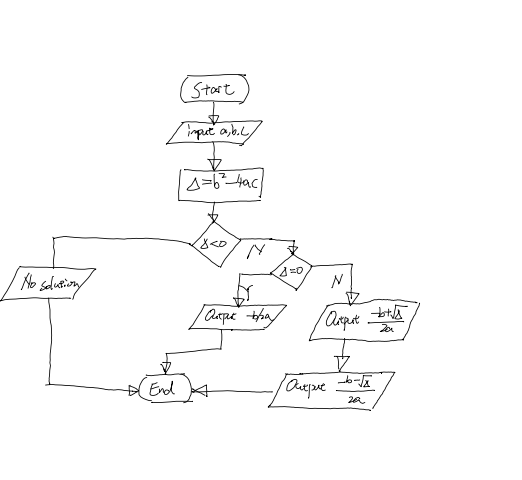 Start
input a,b,c
Δ=b²-4ac
Δ<0
N
Δ=0
N
No solution
Y
Output -b/2a
Output (-b+√Δ)/2a
Output (-b-√Δ)/2a
End